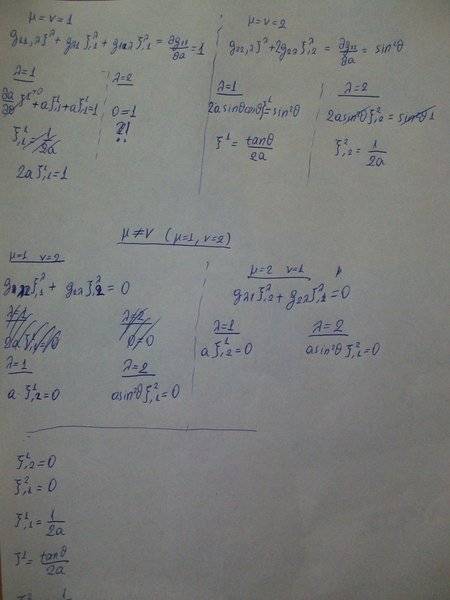 μ=ν=1
g₁₁,λ ξ^λ + g_λ1 ξ^λ,₁ + g₁λ ξ^λ,₁ = ∂g₁₁/∂a = 1
λ=1
ξ¹,₁ = 1/2a
2a ξ¹,₁ = 1
λ=2
0=1
?!
μ=ν=2
g₂₂,λ ξ^λ + 2g₂λ ξ^λ,₂ = ∂g₂₂/∂a = sin²θ
λ=1
2a sinθ cosθ ξ¹ = sin²θ
ξ¹ = tanθ/2a
λ=2
2a sin²θ ξ²,₂ = sin²θ
ξ²,₂ = 1/2a
μ≠ν (μ=1, ν=2)
μ=1 ν=2
g_λ2 ξ^λ,₁ + g₁λ ξ^λ,₂ = 0
λ=1
a ξ¹,₂ = 0
λ=2
a sin²θ ξ²,₁ = 0
μ=2 ν=1
g_λ1 ξ^λ,₂ + g₂λ ξ^λ,₁ = 0
λ=1
a ξ¹,₂ = 0
λ=2
a sin²θ ξ²,₁ = 0
ξ¹,₂ = 0
ξ²,₁ = 0
ξ¹,₁ = 1/2a
ξ¹ = tanθ/2a